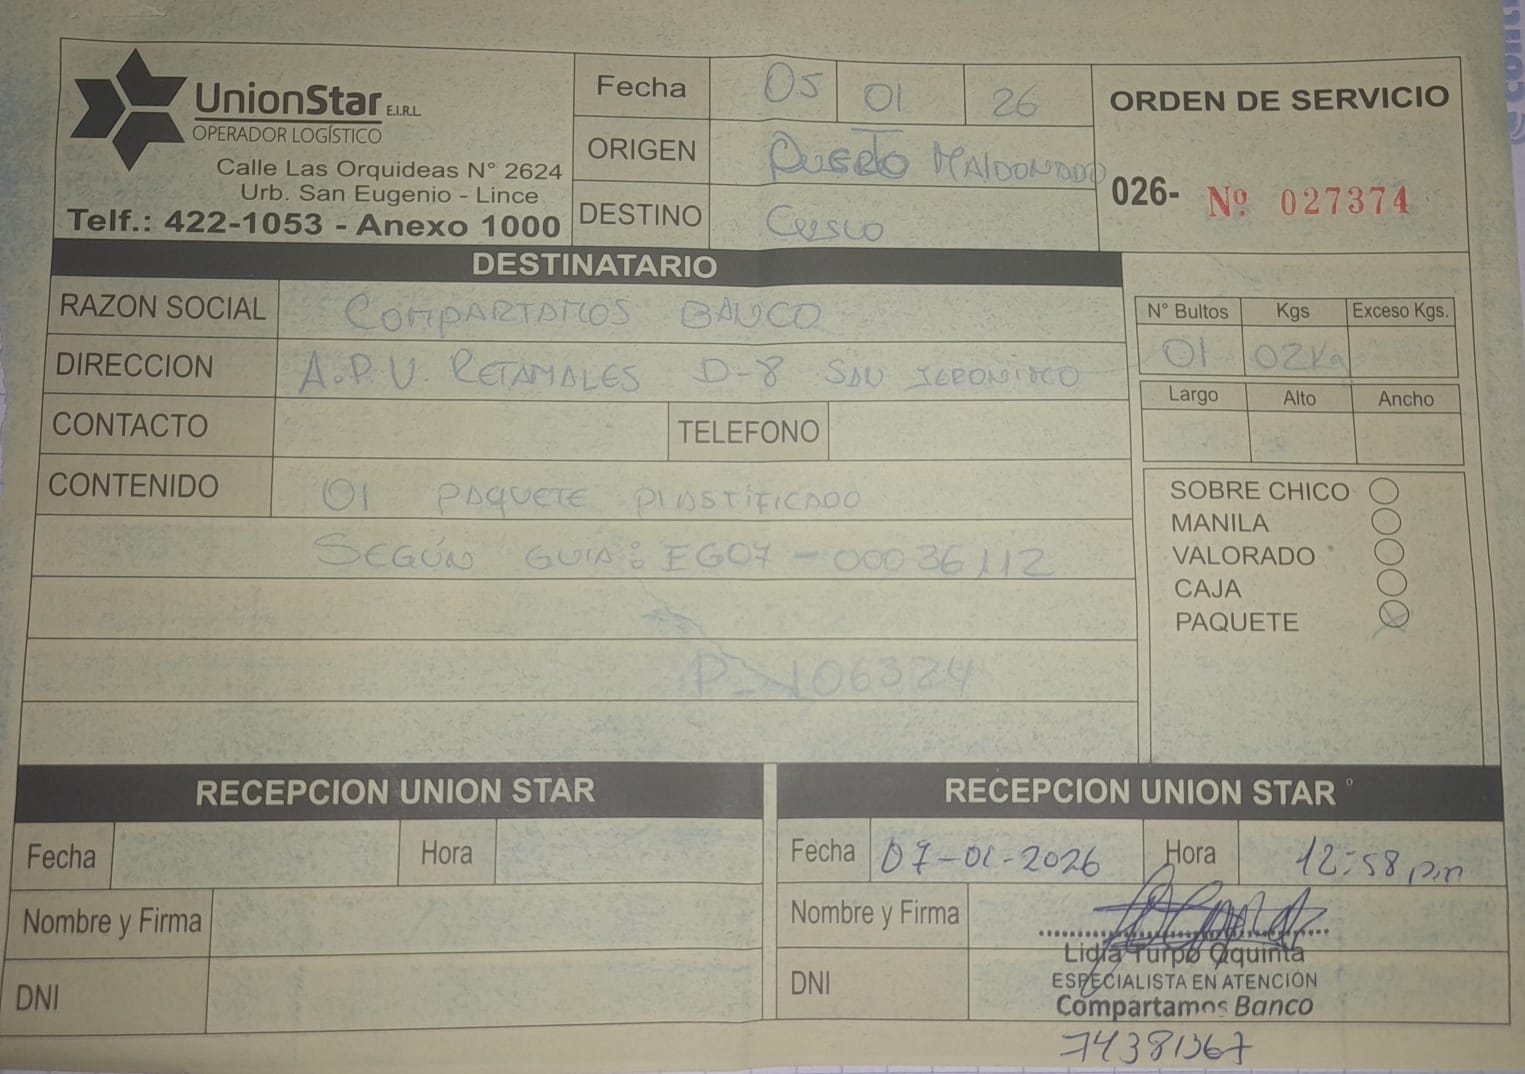 UnionStar E.I.R.L.
OPERADOR LOGÍSTICO
Calle Las Orquideas N° 2624
Urb. San Eugenio - Lince
Telf.: 422-1053 - Anexo 1000
Fecha 05 01 26
ORIGEN Puerto Maldonado
DESTINO Cusco
ORDEN DE SERVICIO
026- Nº 027374
DESTINATARIO
RAZON SOCIAL COMPARTAMOS BANCO
DIRECCION A.P.V. RETAMALES D-8 SAN JERONIMO
CONTACTO TELEFONO
CONTENIDO 01 PAQUETE PLASTIFICADO
SEGÚN GUIA: EG07-00036112
P-106324
N° Bultos Kgs Exceso Kgs.
01 02Kg
Largo Alto Ancho
SOBRE CHICO
MANILA
VALORADO
CAJA
PAQUETE
RECEPCION UNION STAR
Fecha Hora
Nombre y Firma
DNI
RECEPCION UNION STAR
Fecha 07-01-2026 Hora 12:58 pm
Nombre y Firma
Lidia Turpo Qquinta
DNI
ESPECIALISTA EN ATENCIÓN
Compartamos Banco
74381367